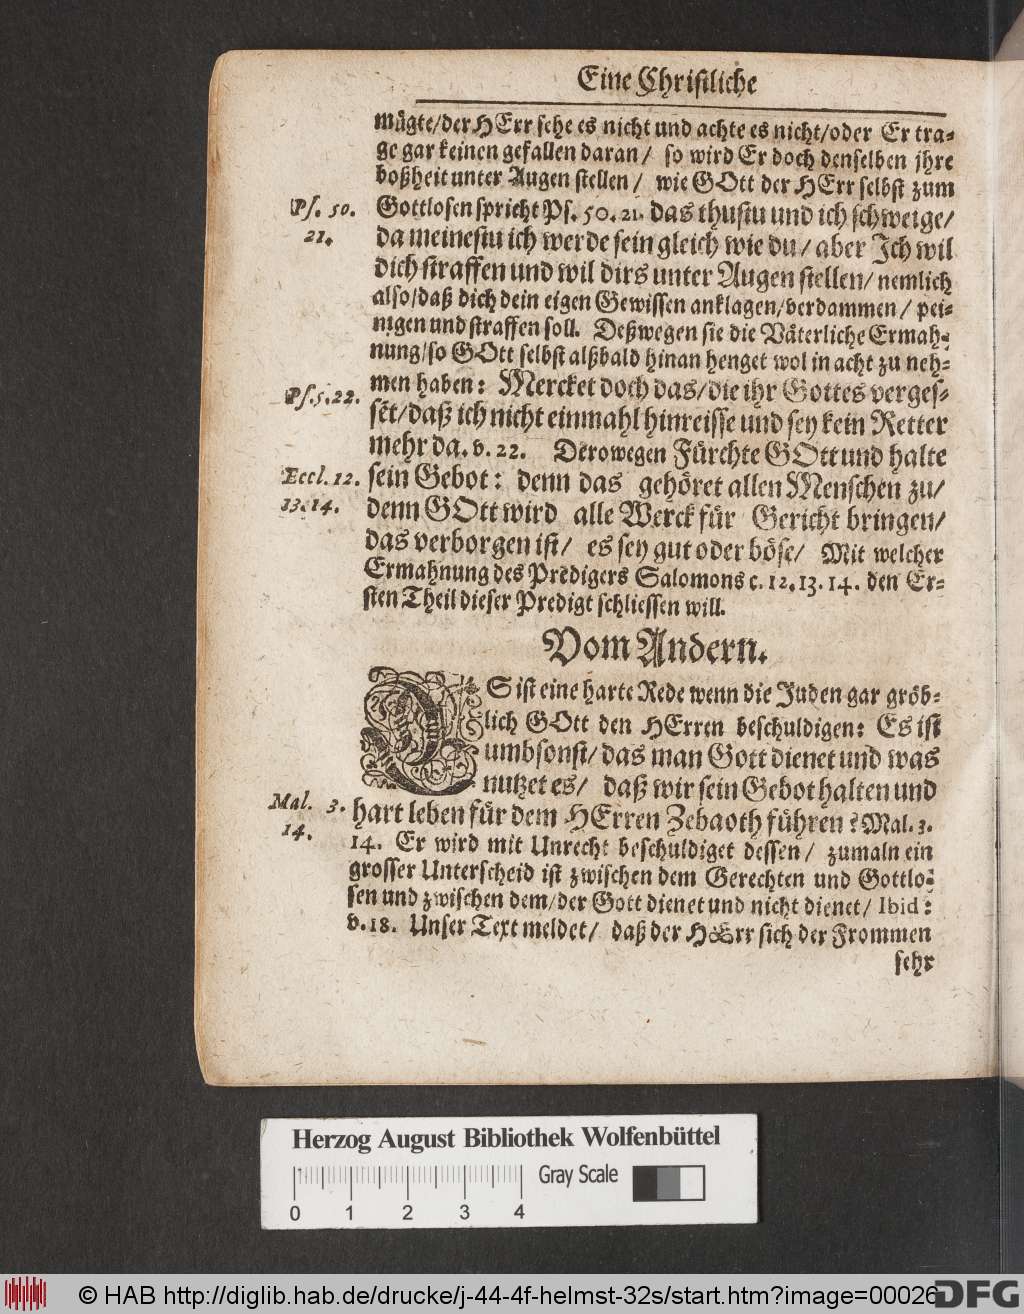 Eine Christliche
mägte/der HErr sehe es nicht und achte es nicht/oder Er tra-
ge gar keinen gefallen daran/ so wird Er doch denselben jhre
boßheit unter Augen stellen/ wie GOtt der HErr selbst zum
Ps. 50. Gottlosen spricht Ps. 50. 21. das thustu und ich schweige/
21. da meinestu ich werde sein gleich wie du/ aber Jch wil
dich straffen und wil dirs unter Augen stellen/ nemlich
also/daß dich dein eigen Gewissen anklagen/verdammen/ pei-
nigen und straffen soll. Deßwegen sie die Väterliche Ermah-
nung/so GOtt selbst alßbald hinan henget wol in acht zu neh-
Ps.5.22. men haben: Mercket doch das/die ihr Gottes verges-
sēt/daß ich nicht einmahl hinreisse und sey kein Retter
mehr da. v. 22. Derowegen Fürchte GOtt und halte
Eccl. 12. sein Gebot: denn das gehöret allen Menschen zu/
13.14. denn GOtt wird alle Werck für Gericht bringen/
das verborgen ist/ es sey gut oder böse/ Mit welcher
Ermahnung des Predigers Salomons c. 12. 13. 14. den Er-
sten Theil dieser Predigt schliessen will.
Vom Andern.
ES ist eine harte Rede wenn die Juden gar gröb-
lich GOtt den HErren beschuldigen: Es ist
umbsonst/ das man Gott dienet und was
nutzet es/ daß wir sein Gebot halten und
Mal. 3. hart leben für dem HErren Zebaoth führen? Mal. 3.
14. 14. Er wird mit Unrecht beschuldiget dessen/ zumaln ein
grosser Unterscheid ist zwischen dem Gerechten und Gottlo-
sen und zwischen dem/der Gott dienet und nicht dienet/ Ibid:
v. 18. Unser Text meldet/ daß der HErr sich der Frommen
sehr
Herzog August Bibliothek Wolfenbüttel
Gray Scale
0 1 2 3 4
© HAB http://diglib.hab.de/drucke/j-44-4f-helmst-32s/start.htm?image=00026
DFG